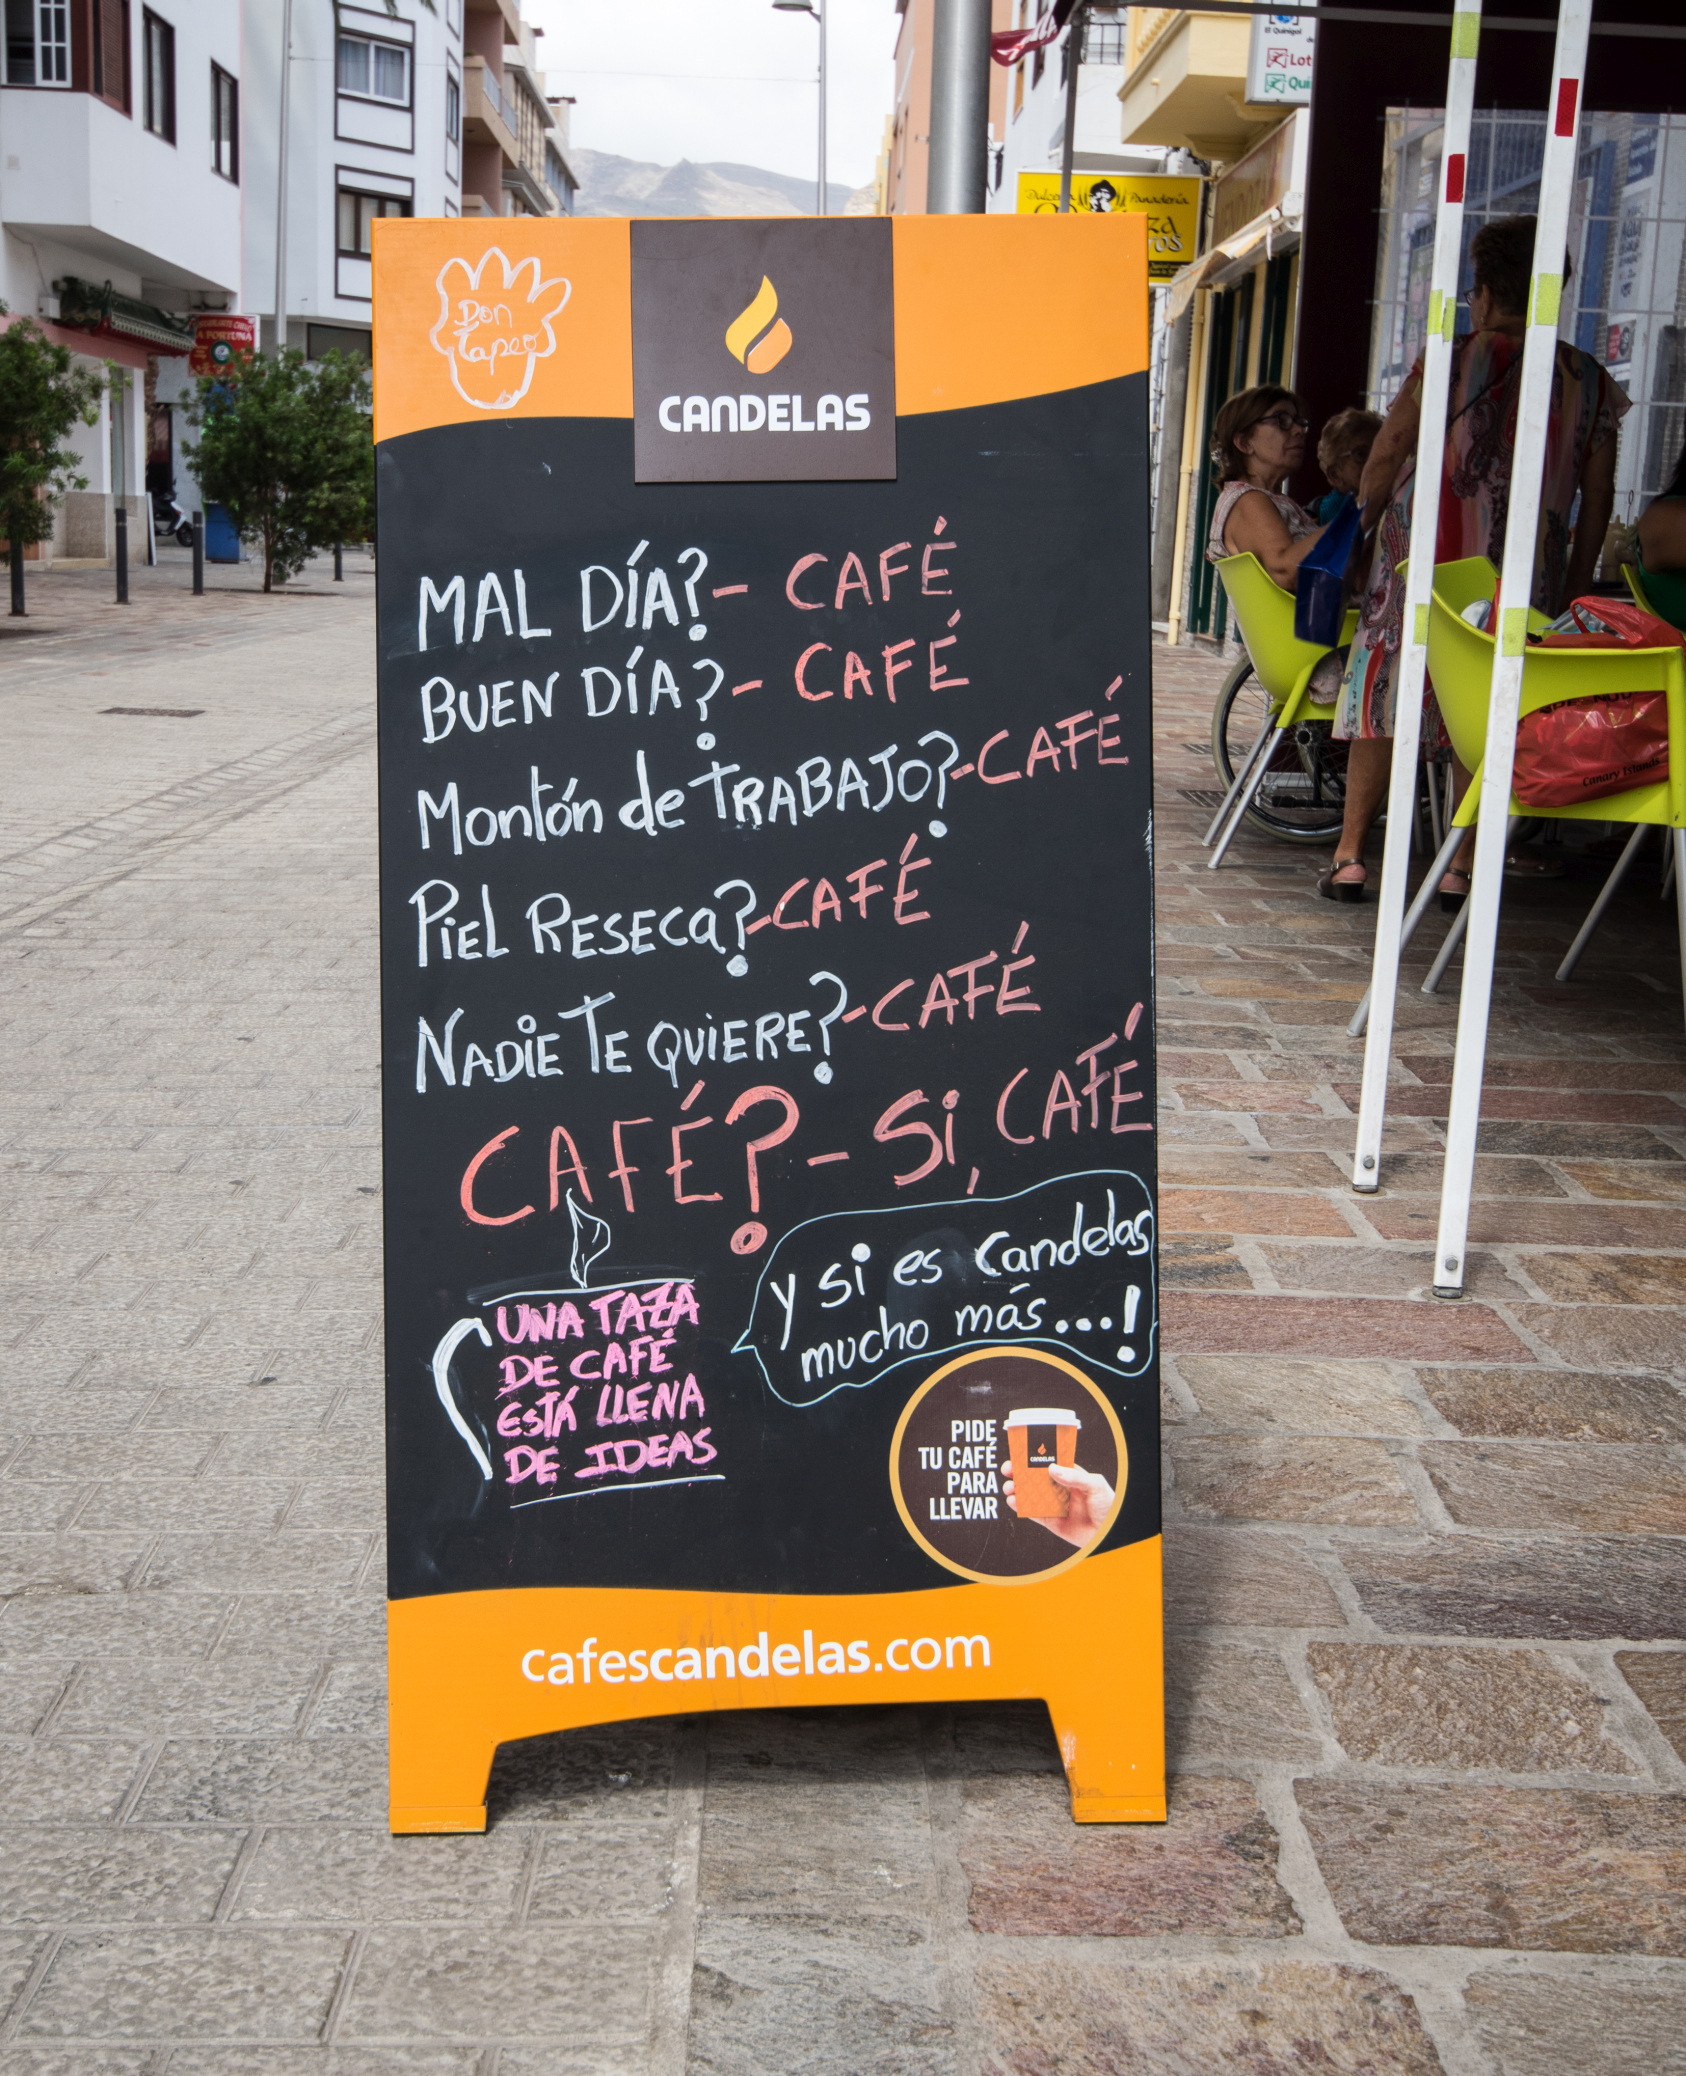 Don
Tapeo
CANDELAS
MAL DÍA?- CAFÉ
BUEN DÍA?- CAFÉ
Montón de TRABAJO?-CAFÉ
PiEL RESECa?-CAFÉ
NADiE TE QUiERE?-CAFÉ
CAFÉ?- Si, CAFÉ
y si es Candelas
mucho más...!
UNA TAZA
DE CAFÉ
ESTÁ LLENA
DE IDEAS
PIDE
TU CAFÉ
PARA
LLEVAR
CANDELAS
cafescandelas.com
Dulcería Panadería
El Quinigol
Canary Islands